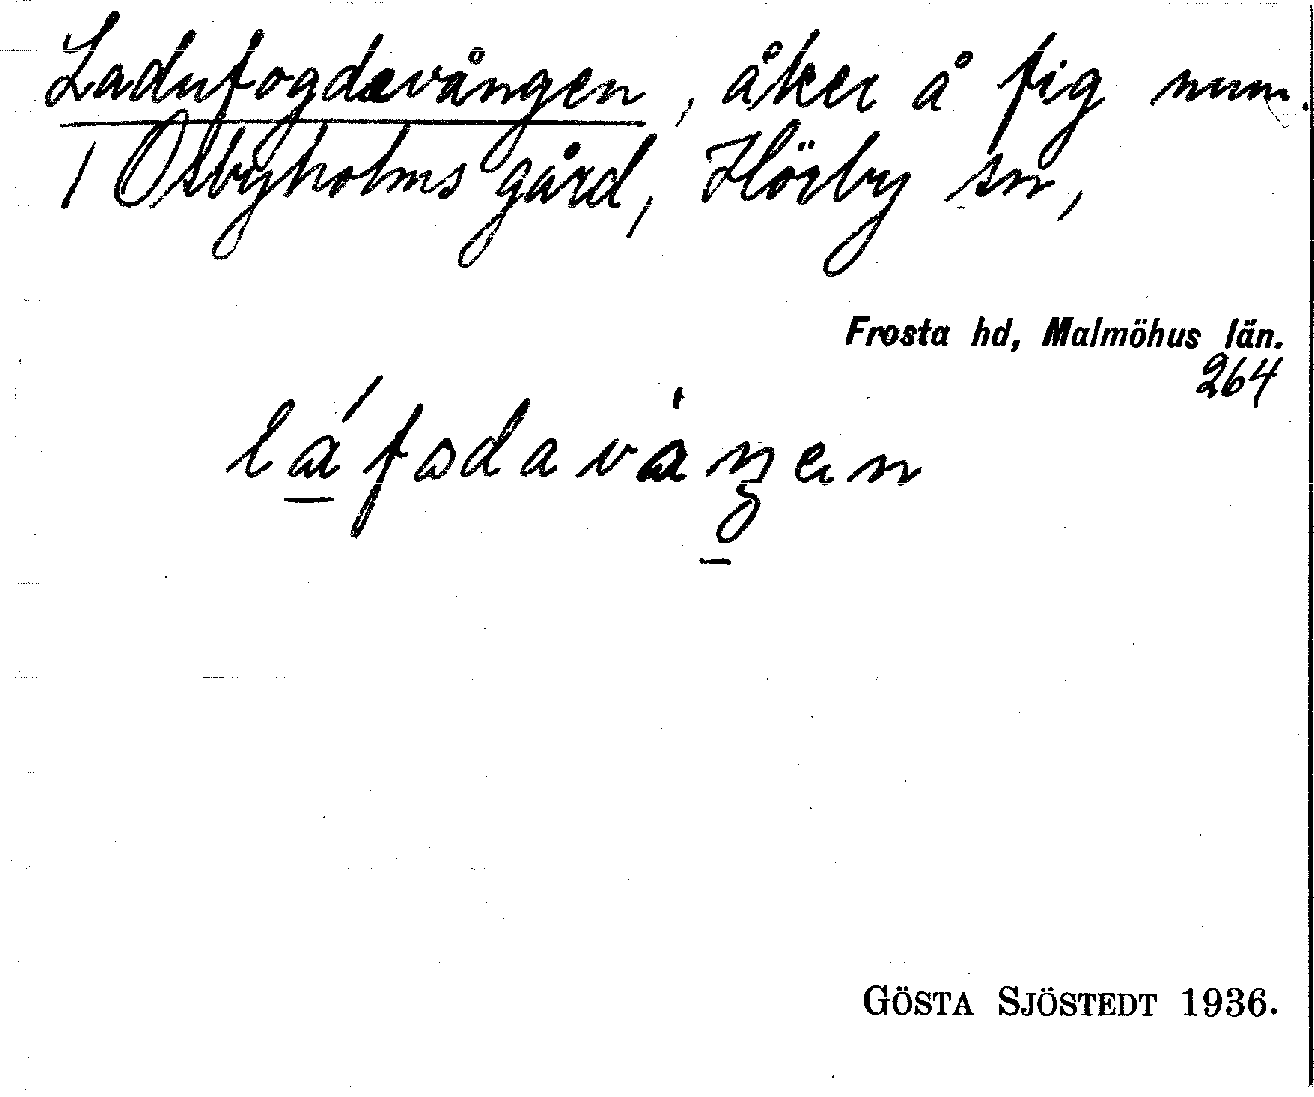 Ladufogdavången, åker å fig num.
1 Osbyholms gård, Hörby sn,
Frosta hd, Malmöhus län.
264
GÖSTA SJÖSTEDT 1936.